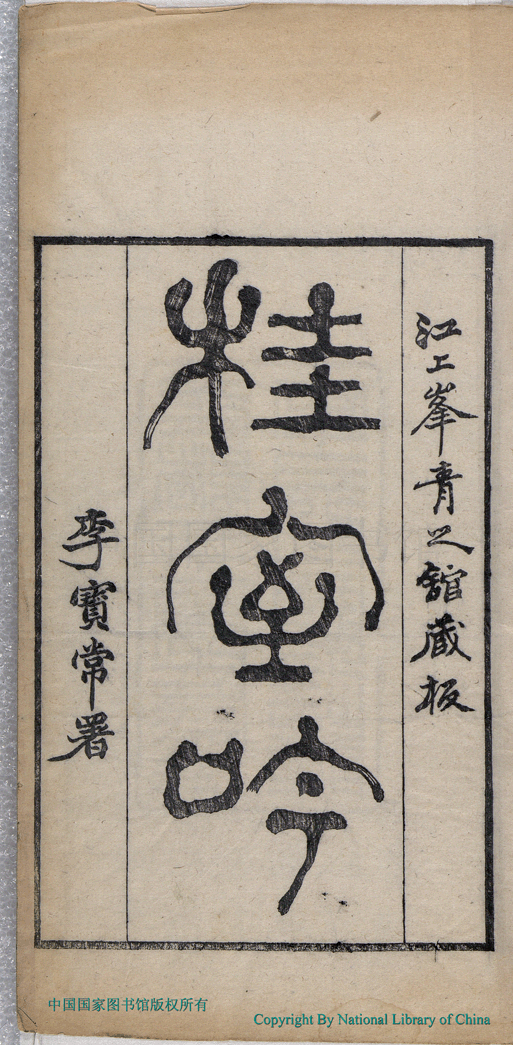 江上峯青之舘藏板
桂室吟
李寶常署
中国国家图书馆版权所有
Copyright By National Library of China